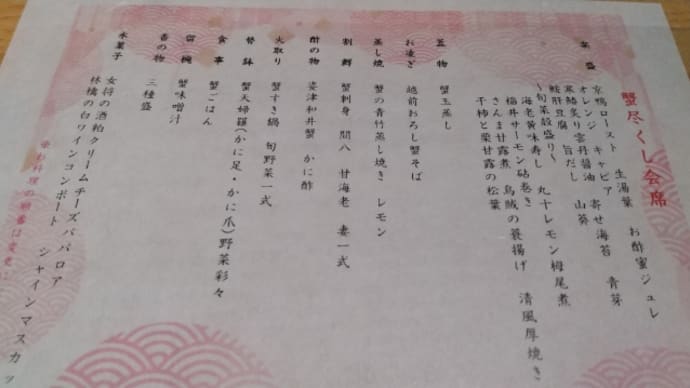 蟹尽くし会席
京鴨ロースト 生湯葉 お酢蜜ジュレ
オレンジ キャビア 寄せ海苔 青芽
寒鰆炙り雲丹醤油 山葵
鮟肝豆腐 旨だし
〜旬菜殻盛り〜 丸十レモン栂尾煮
海老黄味寿し
福井サーモン砧巻き
さんま甘露煮 烏賊の蓑揚げ 清風厚焼き
干柿と栗甘露の松葉
蓋物 蟹玉蒸し
お凌ぎ 越前おろし蟹そば
蒸し焼 蟹の青竹蒸し焼き レモン
割鮮 蟹刺身 間八 甘海老 妻一式
酢の物 姿津和井蟹 かに酢
火取り 蟹すき鍋 旬野菜一式
替鉢 蟹天婦羅(かに足・かに爪)野菜彩々
食事 蟹ごはん
留椀 蟹味噌汁
香の物 三種盛
水菓子 女将の酒粕クリームチーズババロア
林檎の白ワインコンポート シャインマスカッ
お料理の順番は変更に